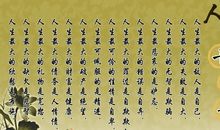 人生最大的敌人是自己
人生最大的失败是自大
人生最大的无智是欺骗
人生最大的悲哀是嫉妒
人生最大的错误是自弃
人生最大的罪过是自欺
人生最可怜的是自卑
人生最可佩服的是精进
人生最大的破产是绝望
人生最大的财富是健康
人生最大的债务是人情债
人生最大的礼物是
人生最大的欠
人生最大的欣